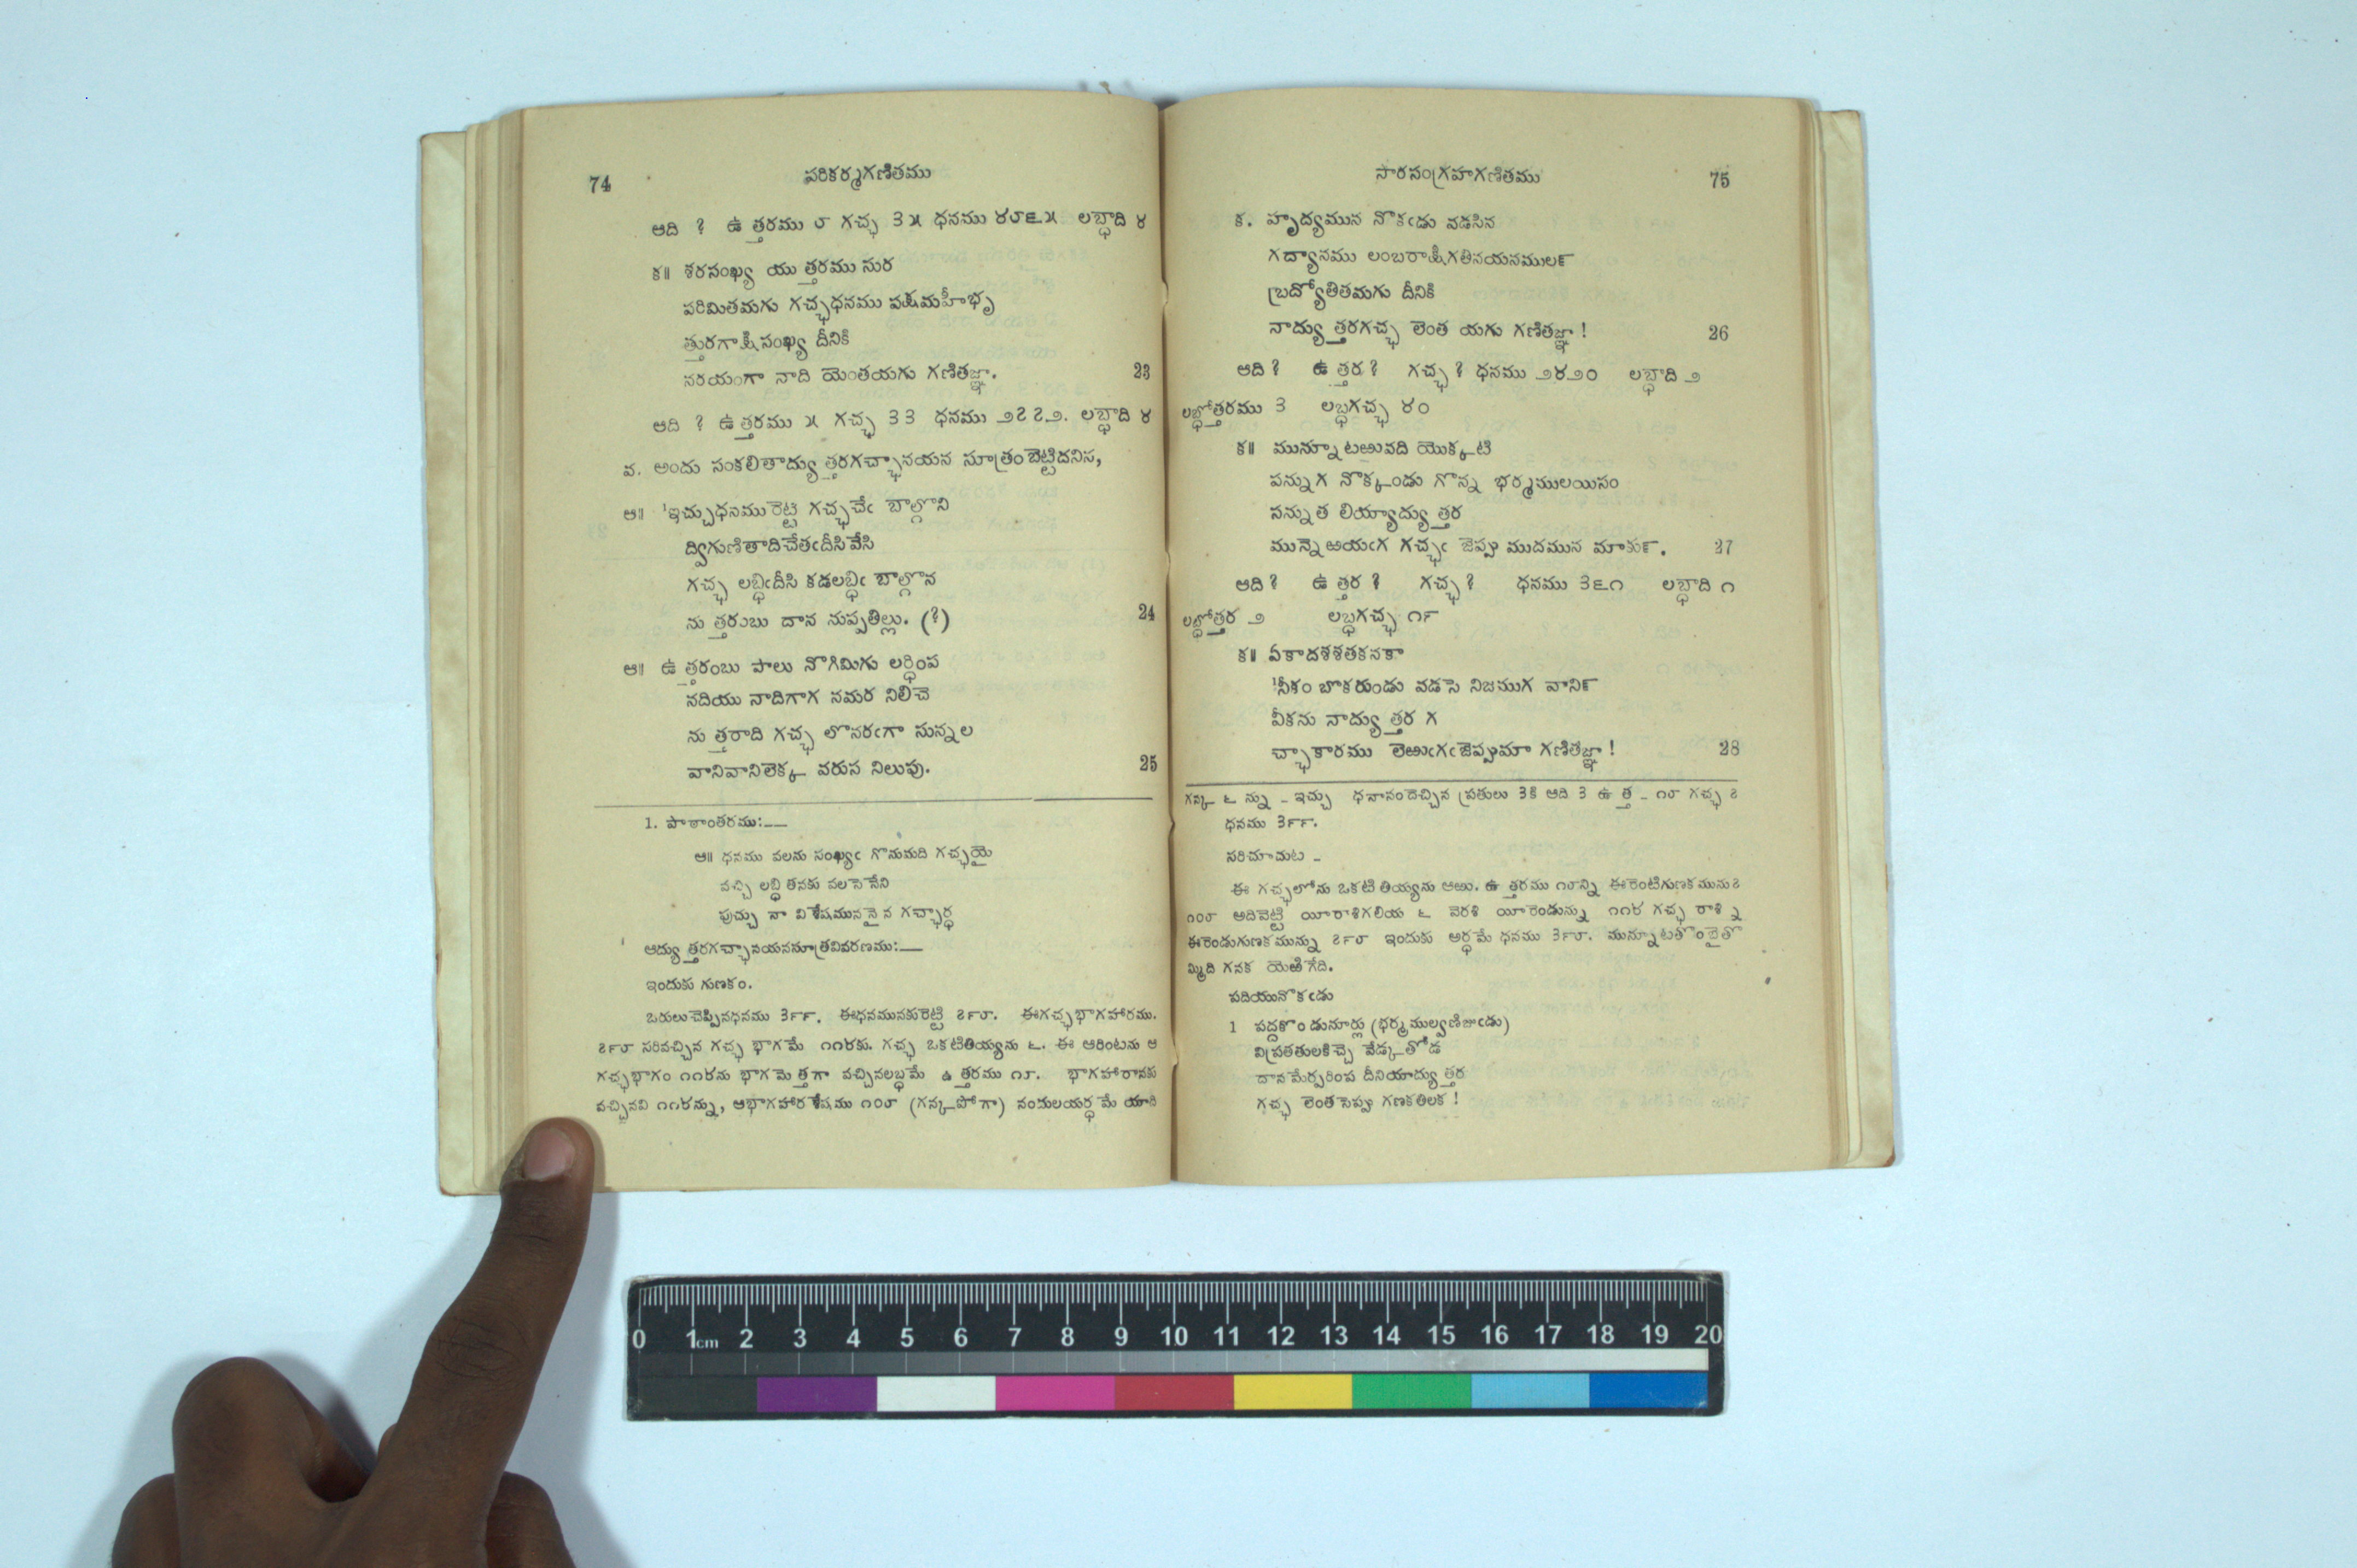 74 పరికర్మగణితము
ఆది ? ఉత్తరము ౮ గచ్ఛ ౩౫ ధనము ౪౮౬౫ లబ్ధాది ౪
క॥ శరసంఖ్య యుత్తరము సుర
పరిమితమగు గచ్ఛధనము పక్షమహీభృ
త్తురగాక్షిసంఖ్య దీనికి
నరయంగా నాది యెంతయగు గణితజ్ఞా. 23
ఆది ? ఉత్తరము ౫ గచ్ఛ ౩౩ ధనము ౨౭౭౨. లబ్ధాది ౪
వ. అందు సంకలితాద్యుత్తరగచ్ఛానయన సూత్రంబెట్టిదనిన,
ఆ॥ ¹ఇచ్చుధనము రెట్టి గచ్ఛచేఁ బాల్గొని
ద్విగుణితాదిచేతఁదీసివేసి
గచ్ఛ లబ్ధిఁదీసి కడలబ్ధిఁ బాల్గొన
నుత్తరుబు దాన నుప్పతిల్లు. (?) 24
ఆ॥ ఉత్తరంబు పాలు నొగిమిగు లర్ధింప
నదియు నాదిగాగ నమర నిలిచె
నుత్తరాది గచ్ఛ లొనరఁగా సున్నల
వానివానిలెక్క వరుస నిలుపు. 25
1. పాఠాంతరము:—
ఆ॥ ధనము వలను సంఖ్యఁ గొనుమది గచ్ఛయై
వచ్చి లబ్ధి తనకు వలసెనేని
పుచ్చు నా విశేషముననైన గచ్ఛార్ధ
ఆద్యుత్తరగచ్ఛానయనసూత్రవివరణము:—
ఇందుకు గుణకం.
ఒరులుచెప్పినధనము ౩౯౯. ఈధనమునకురెట్టి ౭౯౮. ఈగచ్ఛభాగహారము.
౭౯౮ సరివచ్చిన గచ్ఛ భాగమే ౧౧౪కు. గచ్ఛ ఒకటితియ్యను ౬. ఈ ఆరింటను ఆ
గచ్ఛభాగం ౧౧౪ను భాగమెత్తగా వచ్చినలబ్ధమే ఉత్తరము ౧౮. భాగహారానకు
వచ్చినవి ౧౧౪న్ను, ఆభాగహారశేషము ౧౦౮ (గన్కపోగా) నందులయర్ధమే యాది
సారసంగ్రహగణితము 75
క. హృద్యమున నొకఁడు వడసిన
గద్యానము లంబరాక్షిగతినయనములన్
బ్రద్యోతితమగు దీనికి
నాద్యుత్తరగచ్ఛ లెంత యగు గణితజ్ఞా! 26
ఆది ? ఉత్తర ? గచ్ఛ ? ధనము ౨౪౨౦ లబ్ధాది ౨
లబ్ధోత్తరము ౩ లబ్ధగచ్ఛ ౪౦
క॥ మున్నూటఱువది యొక్కటి
పన్నుగ నొక్కండు గొన్న భర్మములయినం
నన్నుత లియ్యాద్యుత్తర
మున్నెఱయఁగ గచ్ఛఁ జెప్పు ముదమున మాకున్. 27
ఆది ? ఉత్తర ? గచ్ఛ ? ధనము ౩౬౧ లబ్ధాది ౧
లబ్ధోత్తర ౨ లబ్ధగచ్ఛ ౧౯
క॥ ఏకాదశశతకనకా
¹నీకం బొకరుండు వడసె నిజముగ వానిన్
వీకను నాద్యుత్తర గ
చ్ఛాకారము లెఱుఁగఁజెప్పుమా గణితజ్ఞా! 28
గన్క ౬ న్ను - ఇచ్చు ధనానందెచ్చిన ప్రతులు ౩కి ఆది ౩ ఉత్త - ౧౮ గచ్ఛ ౭
ధనము ౩౯౯.
సరిచూచుట -
ఈ గచ్ఛలోను ఒకటి తియ్యను ఆఱు. ఉత్తరము ౧౮న్ని ఈరెంటిగుణకమును౭
౧౦౮ అదివెట్టి యీరాశిగలియ ౬ వెరశి యీరెండున్ను ౧౧౪ గచ్ఛ రాశిన్ని
ఈరెండుగుణకమున్ను ౭౯౮ ఇందుకు అర్ధమే ధనము ౩౯౯. మున్నూటతొంబైతొ
మ్మిది గనక యెఱిగేది.
పదియునొకఁడు
1 పద్దకొండునూర్లు (భర్మముల్వణిజుఁడు)
విప్రతతులకిచ్చె వేడ్కతోడ
దానమేర్పరింప దీనియాద్యుత్తర
గచ్ఛ లెంతసెప్పు గణకతిలక!
0 1cm 2 3 4 5 6 7 8 9 10 11 12 13 14 15 16 17 18 19 20